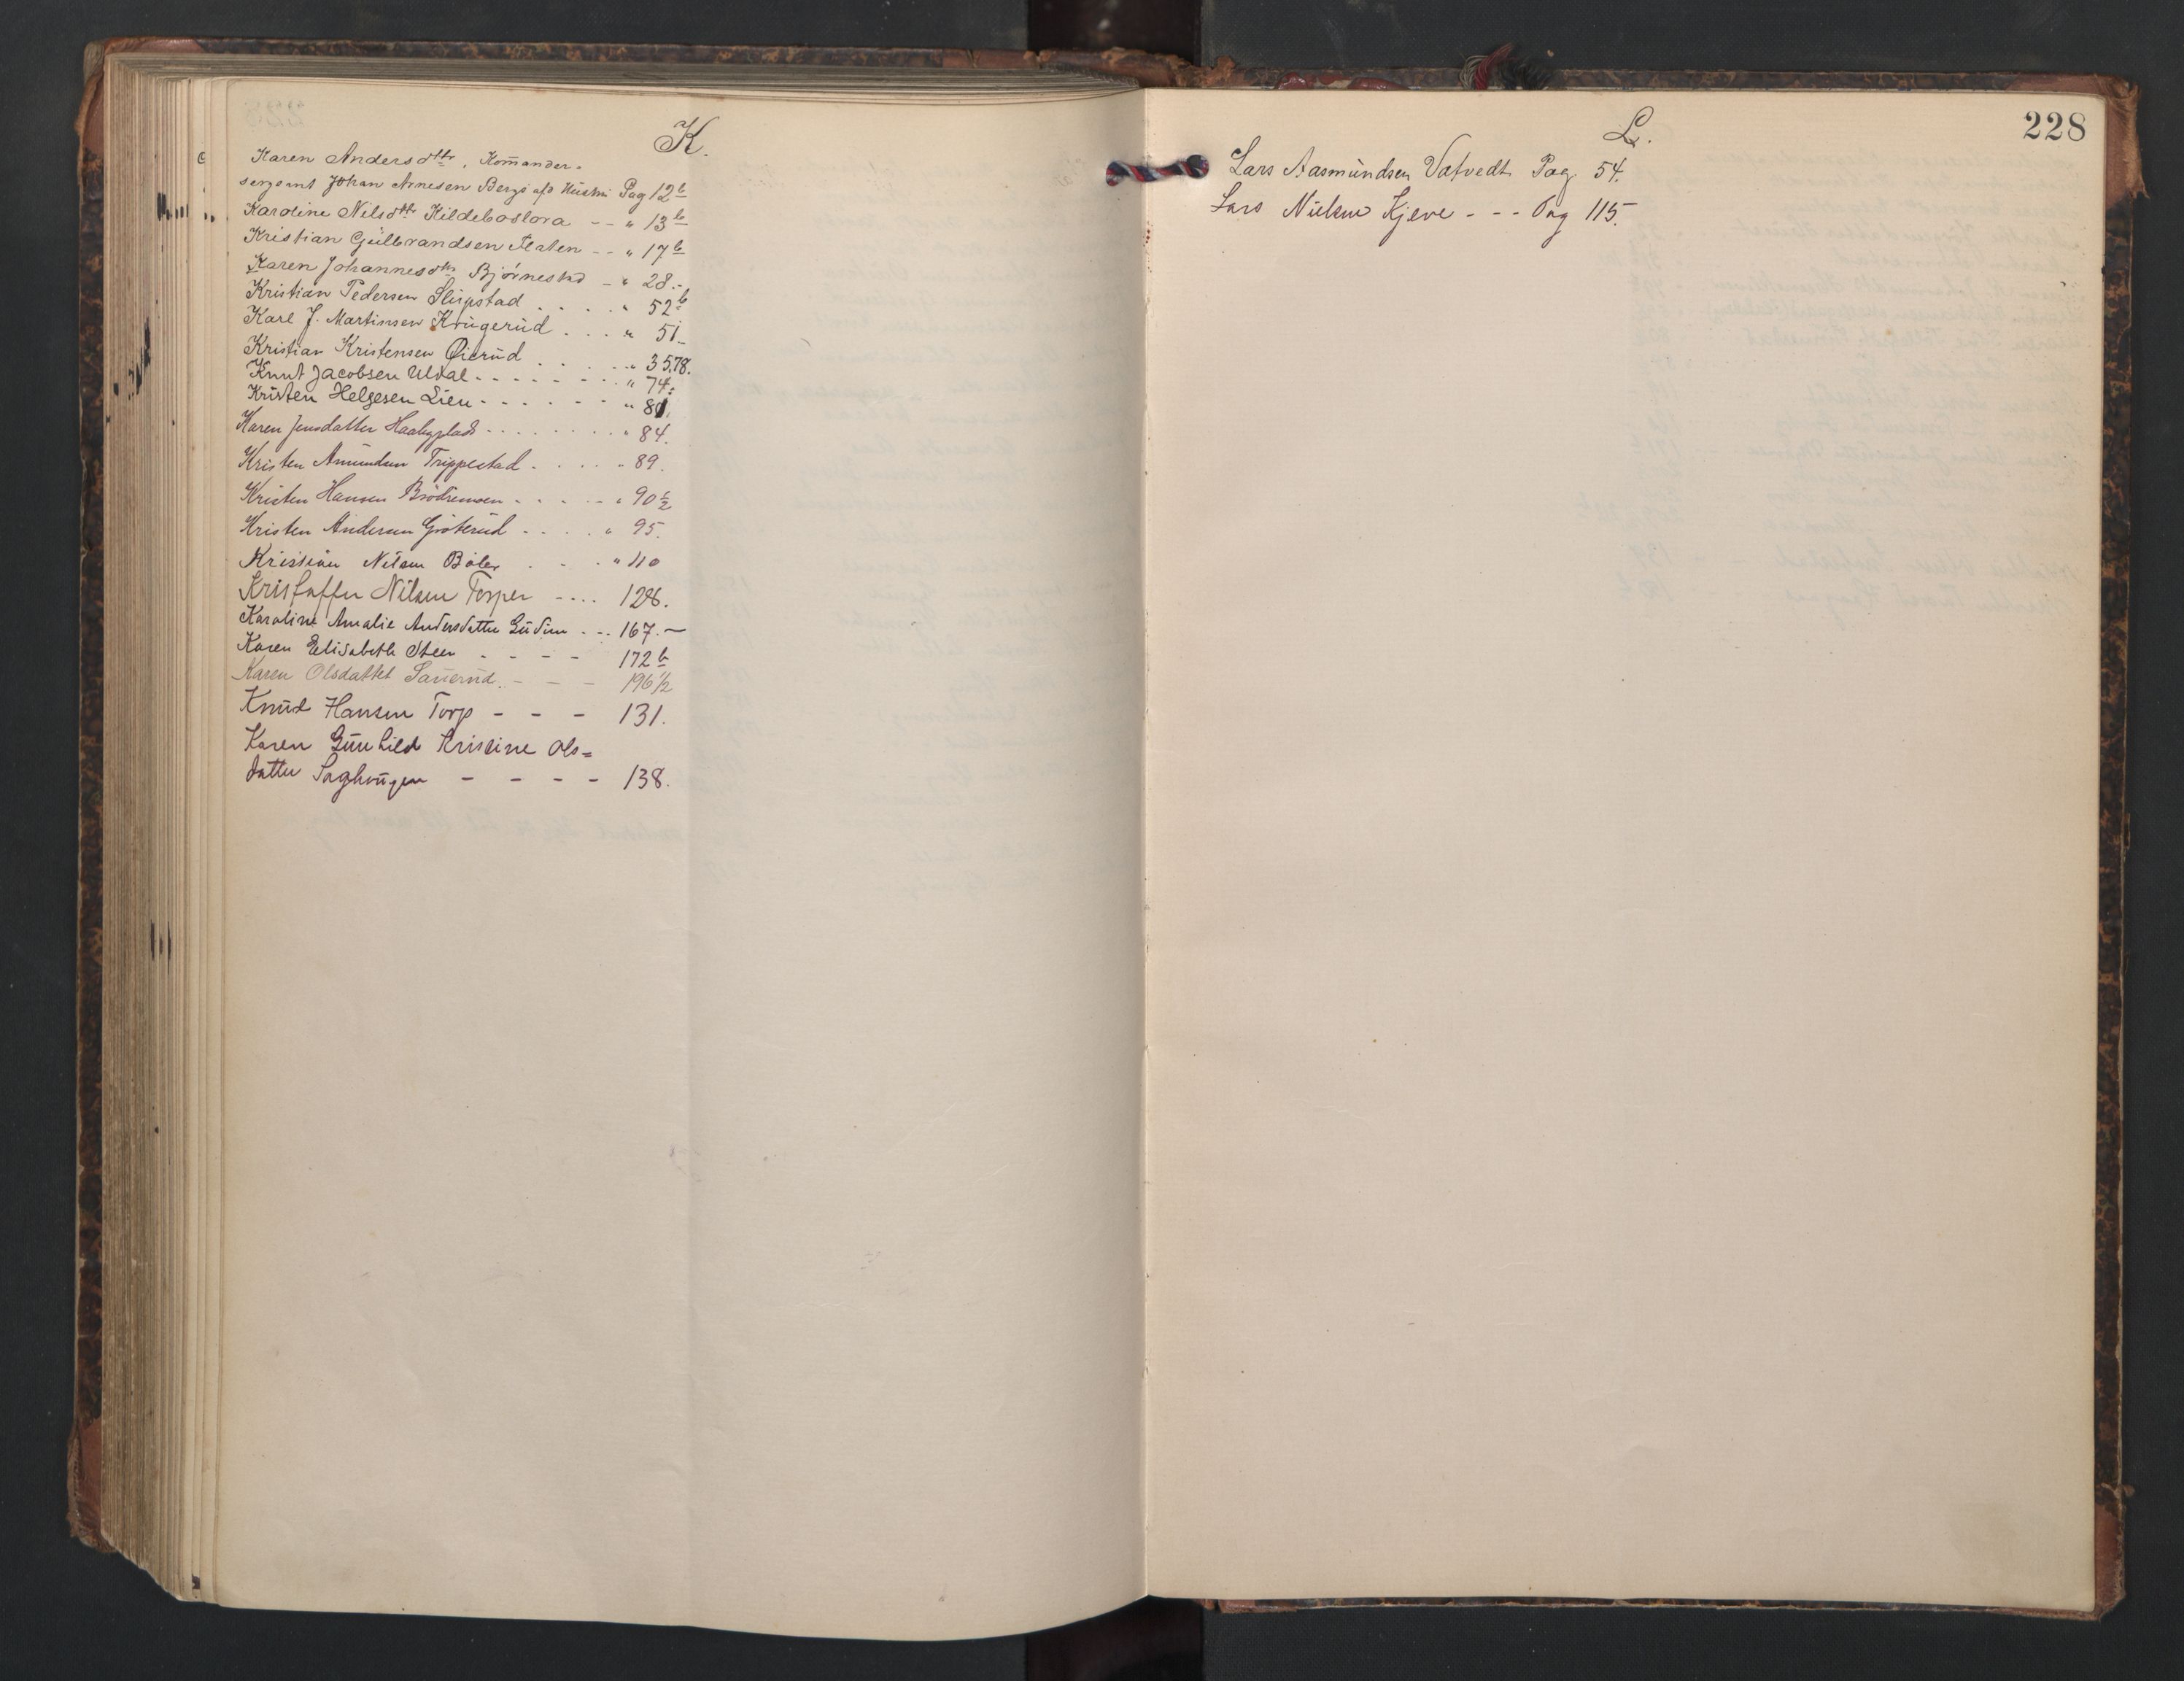 K.
Karen Andersdttr, Kom̄ander-
sergeant Johan Arnesen Bergs afd Hustru Pag 12 b
Karoline Nilsdttr Kildebostora - - " 13 b
Kristian Gulbrandsen - - " 17 b
Karen Johannesdttr Bjørnestad - " 28.-
Kristian Pedersen Slupstad . . . . " 52 b
Karl J. Martinsen Krugerud . . . " 51.-
Kristian Kristensen Øierud . . . . . " 35,78.
Knut Jacobsen Uldal - - - - - - - " 74.
Kristen Helgesen Lien - - - - - - " 81.
Karen Jensdatter Haabyplads . . . . . . . . " 84.
Kristen Amundsen Trippestad . . . . . " 89.
Kristen Hansen - - - - - " 90 ½
Kristen Andersen Grøterud - - - . " 95.
Kristian Nilsen Bøler . . . " 110
Kristoffer Nilsen Torper - - . . 126.
Karoline Amalie Andersdatter Gudim . - . 167.-
Karen Elisabeth Steen - - - - 172 b
Karen Olsdatter Sauerud. - - - 196 1/2
Knud Hansen Torp - - - 131.
Karen Gunhild Kristine Ols=
datter Saghaugen - - - - 138.
228
L.
Lars Aasmundsen Vatvedt Pag. 54.
Lars Nielsen Kjeve - - - Pag 115.